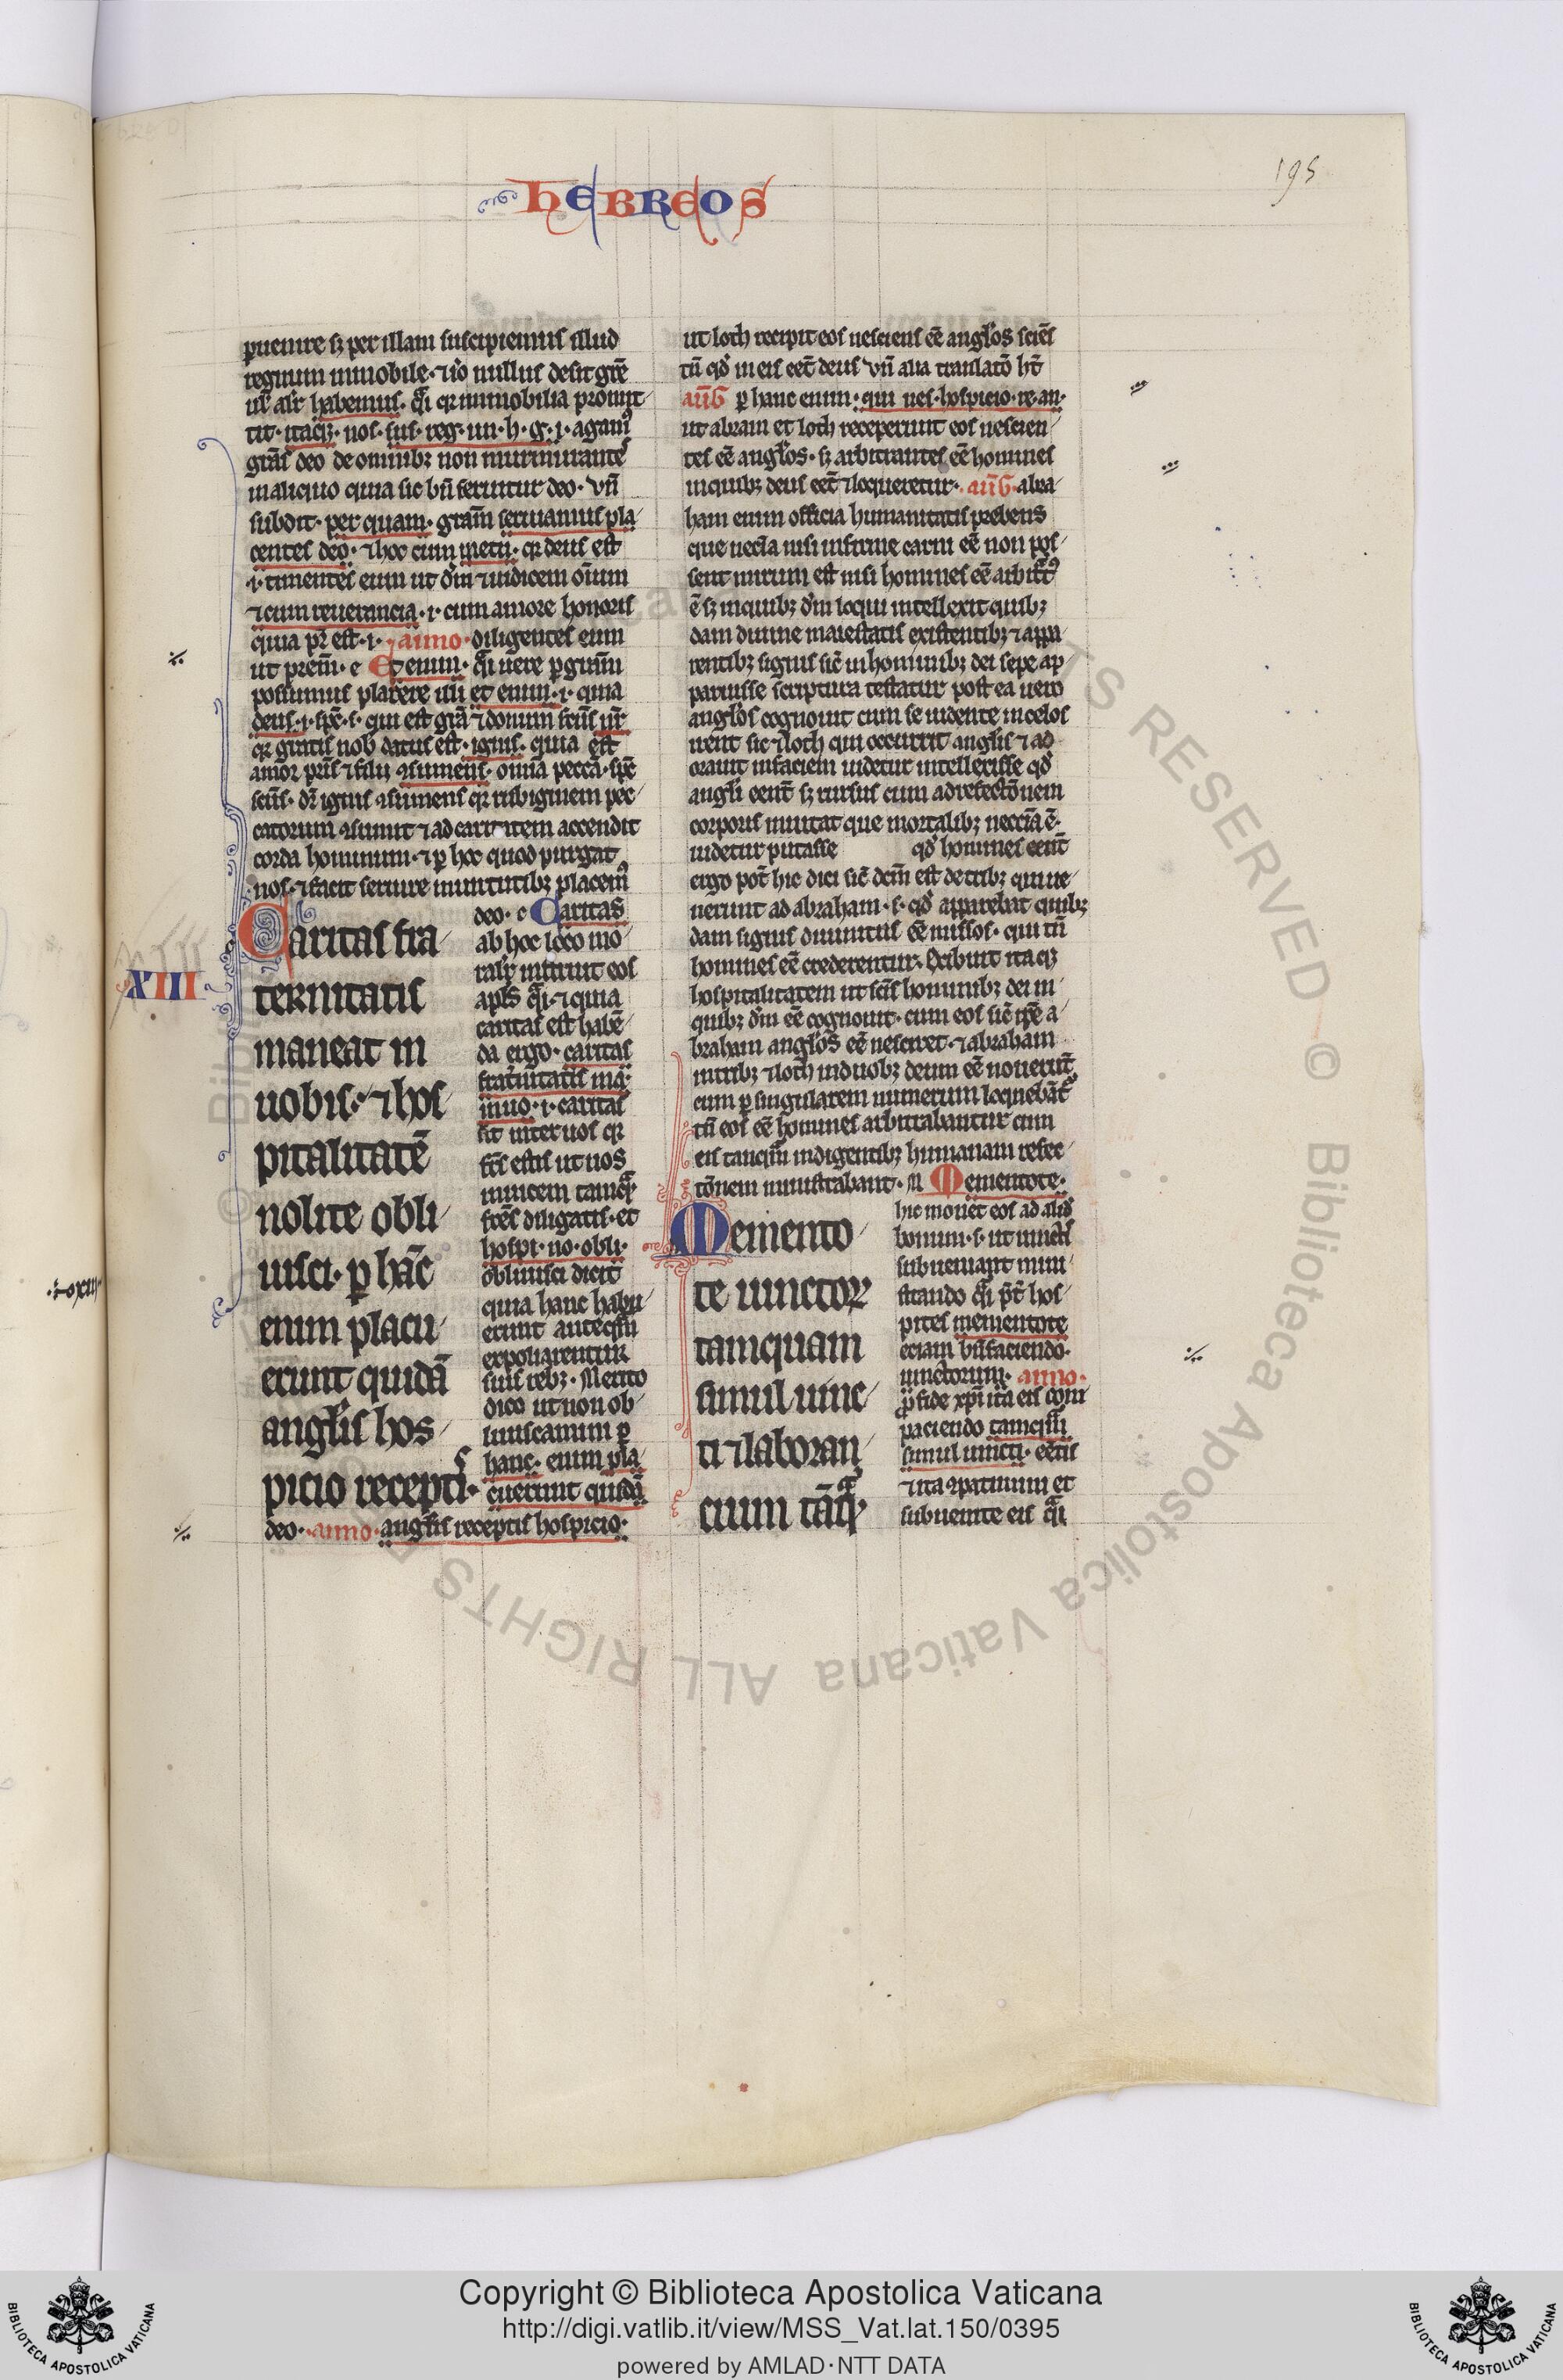 hebreos
195
puenire sꝫ per illam suscipiemus illud
regnum inmobile· uͦ nullus desit grē
ut̄ alr̄ habemus· qͣi qꝛ inmobilia promit
tit· itaqꝫ· nos· sus· reg· im· h· g· i· agamꝰ
grās deo de omnibꝫ non murmurantes
in aliquo quia sic bn̄ seruitur deo· vn̄
subdit· per quam· gram̄ seruiamus pla
centes deo· ⁊ hoc cum metu· qꝛ deus est
·i· timentes eum ut dn̄m ⁊ iudicem oīum
⁊ cum reuerencia· i· cum amore honoris
quia pr̄ est· i· aimo· diligentes eum
ut prem̄· e Et enim· qͣi uere ꝑ gram̄
possumus placere illi et enim· i· quia
deus· i· spc̄· s· qui est grā ⁊ donum sctūs nr̄
qꝛ gratis nob datus est· ignis· quia est
amor pris̄ ⁊ filii ꝯsumens· omnia pecca· spc̄
sctūs· dr̄ ignis ꝯsumens qꝛ rubiginem pec
catorum ꝯsumit ⁊ ad caritatem accendit
corda hominum· ⁊ ꝑ hoc quod purgat
nos· ⁊ facit seruire in uirtutibꝫ placemꝰ
deo· c Caritas
ab hoc loco mo
ralr̄ instruit eos
apls̄ qͣi· ⁊ quia
caritas est habē
da ergo· caritas
frat̄nitatis ma·
in uo· i· caritas
sit inter uos qꝛ
fr̄es estis ut uos
inuicem tamqͣ
fr̄es diligatis· et
hospi· no· obli·
obliuisci dicit
quia hanc habu
erunt anteqͣm
expoliarentur
suis rebꝫ· Merito
dico ut non ob
liuiscamini ꝑ
hanc· enim pla
cuerunt quidā
deo· aimo· anglis receptis hospicio·
XIII
Caritas fra
ternitatis
maneat in
uobis· ⁊ hos
pitalitatē
nolite obli
uisci· ꝑ hāc
enim placu
erunt quidā
angl̄is hos
picio recepti·s
ut loth recepit eos nesciens eē anglos sciēs
tn̄ qd̄ in eis eēt deus vn̄ alia translatō ht̄
auḡ ꝑ hanc enim· qui nes· hospicio· re· an·
ut abram et loth receperunt eos nescien
tes eē anglos· sꝫ arbitrantes eē homines
in quibꝫ deus eēt ⁊ loqueretur· auḡ· abra
ham enim officia humanitatis prebens
que necc̄ia nisi infirme carni eē non pos
sent mirum est nisi homines eē arbitͣtꝰ
ē sꝫ in quibꝫ dn̄m loqui intellexit quibꝫ
dam diuine maiestatis existentibꝫ ⁊ appa
rentibꝫ signis sic̄ in hominibꝫ dei sepe ap
paruisse scriptura testatur post ea uero
anglos cognouit cum se uidente in celos
irent sic ⁊ loth qui occurrit anglis ⁊ ad
orauit in faciem uidetur intellexisse qd̄
angli eent̄ sꝫ rursus cum ad refectōnem
corporis inuitat que mortalibꝫ necc̄ia ē·
uidetur putasse qd̄ homines eent̄
ergo pot̄ hic dici sic̄ dcm̄ est de tribꝫ qui ue
nerunt ad abraham· s· qd̄ apparebat quibꝫ
dam signis diuinitus eē missos· qui tn̄
homines eē crederentur· Exibuit itaqꝫ
hospitalitatem ut scīs hominibꝫ dei in
quibꝫ dn̄m eē cognouit· cum eos sic̄ ip̄e a
braham anglos eē nesciret· ⁊ abraham
in tribꝫ ⁊ loth in duobꝫ deum eē nouerūt
cum ꝑ singularem numerum loquebāt̄
tn̄ eos eē homines arbitrabantur cum
eis tanqͣm indigentibꝫ humanam refec
tōnem ministrabant· M Mementote·
hic mouet eos ad aliud
bonum· s· ut uinctis
subueniant mini
strando qͣi pt̄ hos
pites mementote
eciam bn̄faciendo·
uinctorum· aimo·
ꝓ fide xp̄i ita eis com
paciendo tamqͣm
simul uincti· eetis
⁊ ita ꝯpatimini et
subuenite eis qͣi
Memento
te uinctoꝝ
tamquam
simul uinc
ti ⁊ laboran
cium tāqͣ
Copyright © Biblioteca Apostolica Vaticana
http://digi.vatlib.it/view/MSS_Vat.lat.150/0395
powered by AMLAD·NTT DATA